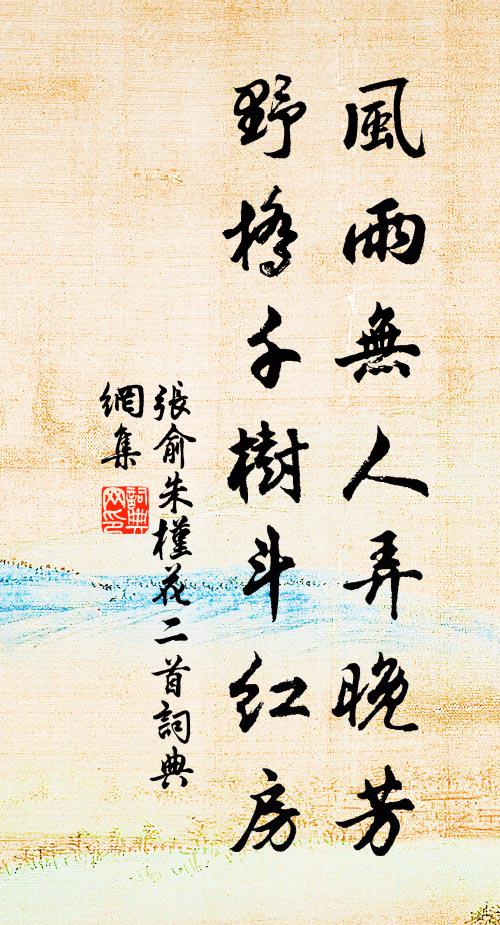 風雨無人弄晚芳
野橋千樹斗紅房
張俞朱槿花二首詞典
網集
詞典
网印